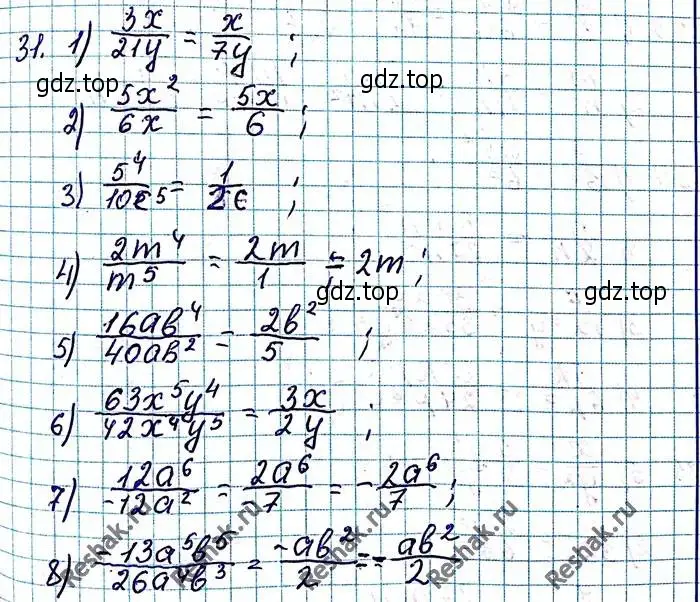 31. 1) 3x/21y = x/7y ;
gdz.top
gdz.top
2) 5x²/6x = 5x/6 ;
3) 5⁴/10c⁵ = 1/2c ;
4) 2m⁴/m⁵ = 2m/1 = 2m ;
gdz.top
gdz.top
5) 16ab⁴/40ab² = 2b²/5 ;
6) 63x⁵y⁴/42x⁴y⁵ = 3x/2y ;
7) 12a⁶/-12a² = 2a⁶/-7 = -2a⁶/7 ;
8) -13a⁵b⁵/26a⁴b³ = -ab²/2 = -ab²/2
Reshak.ru
Reshak.ru
Reshak.ru
Reshak.ru